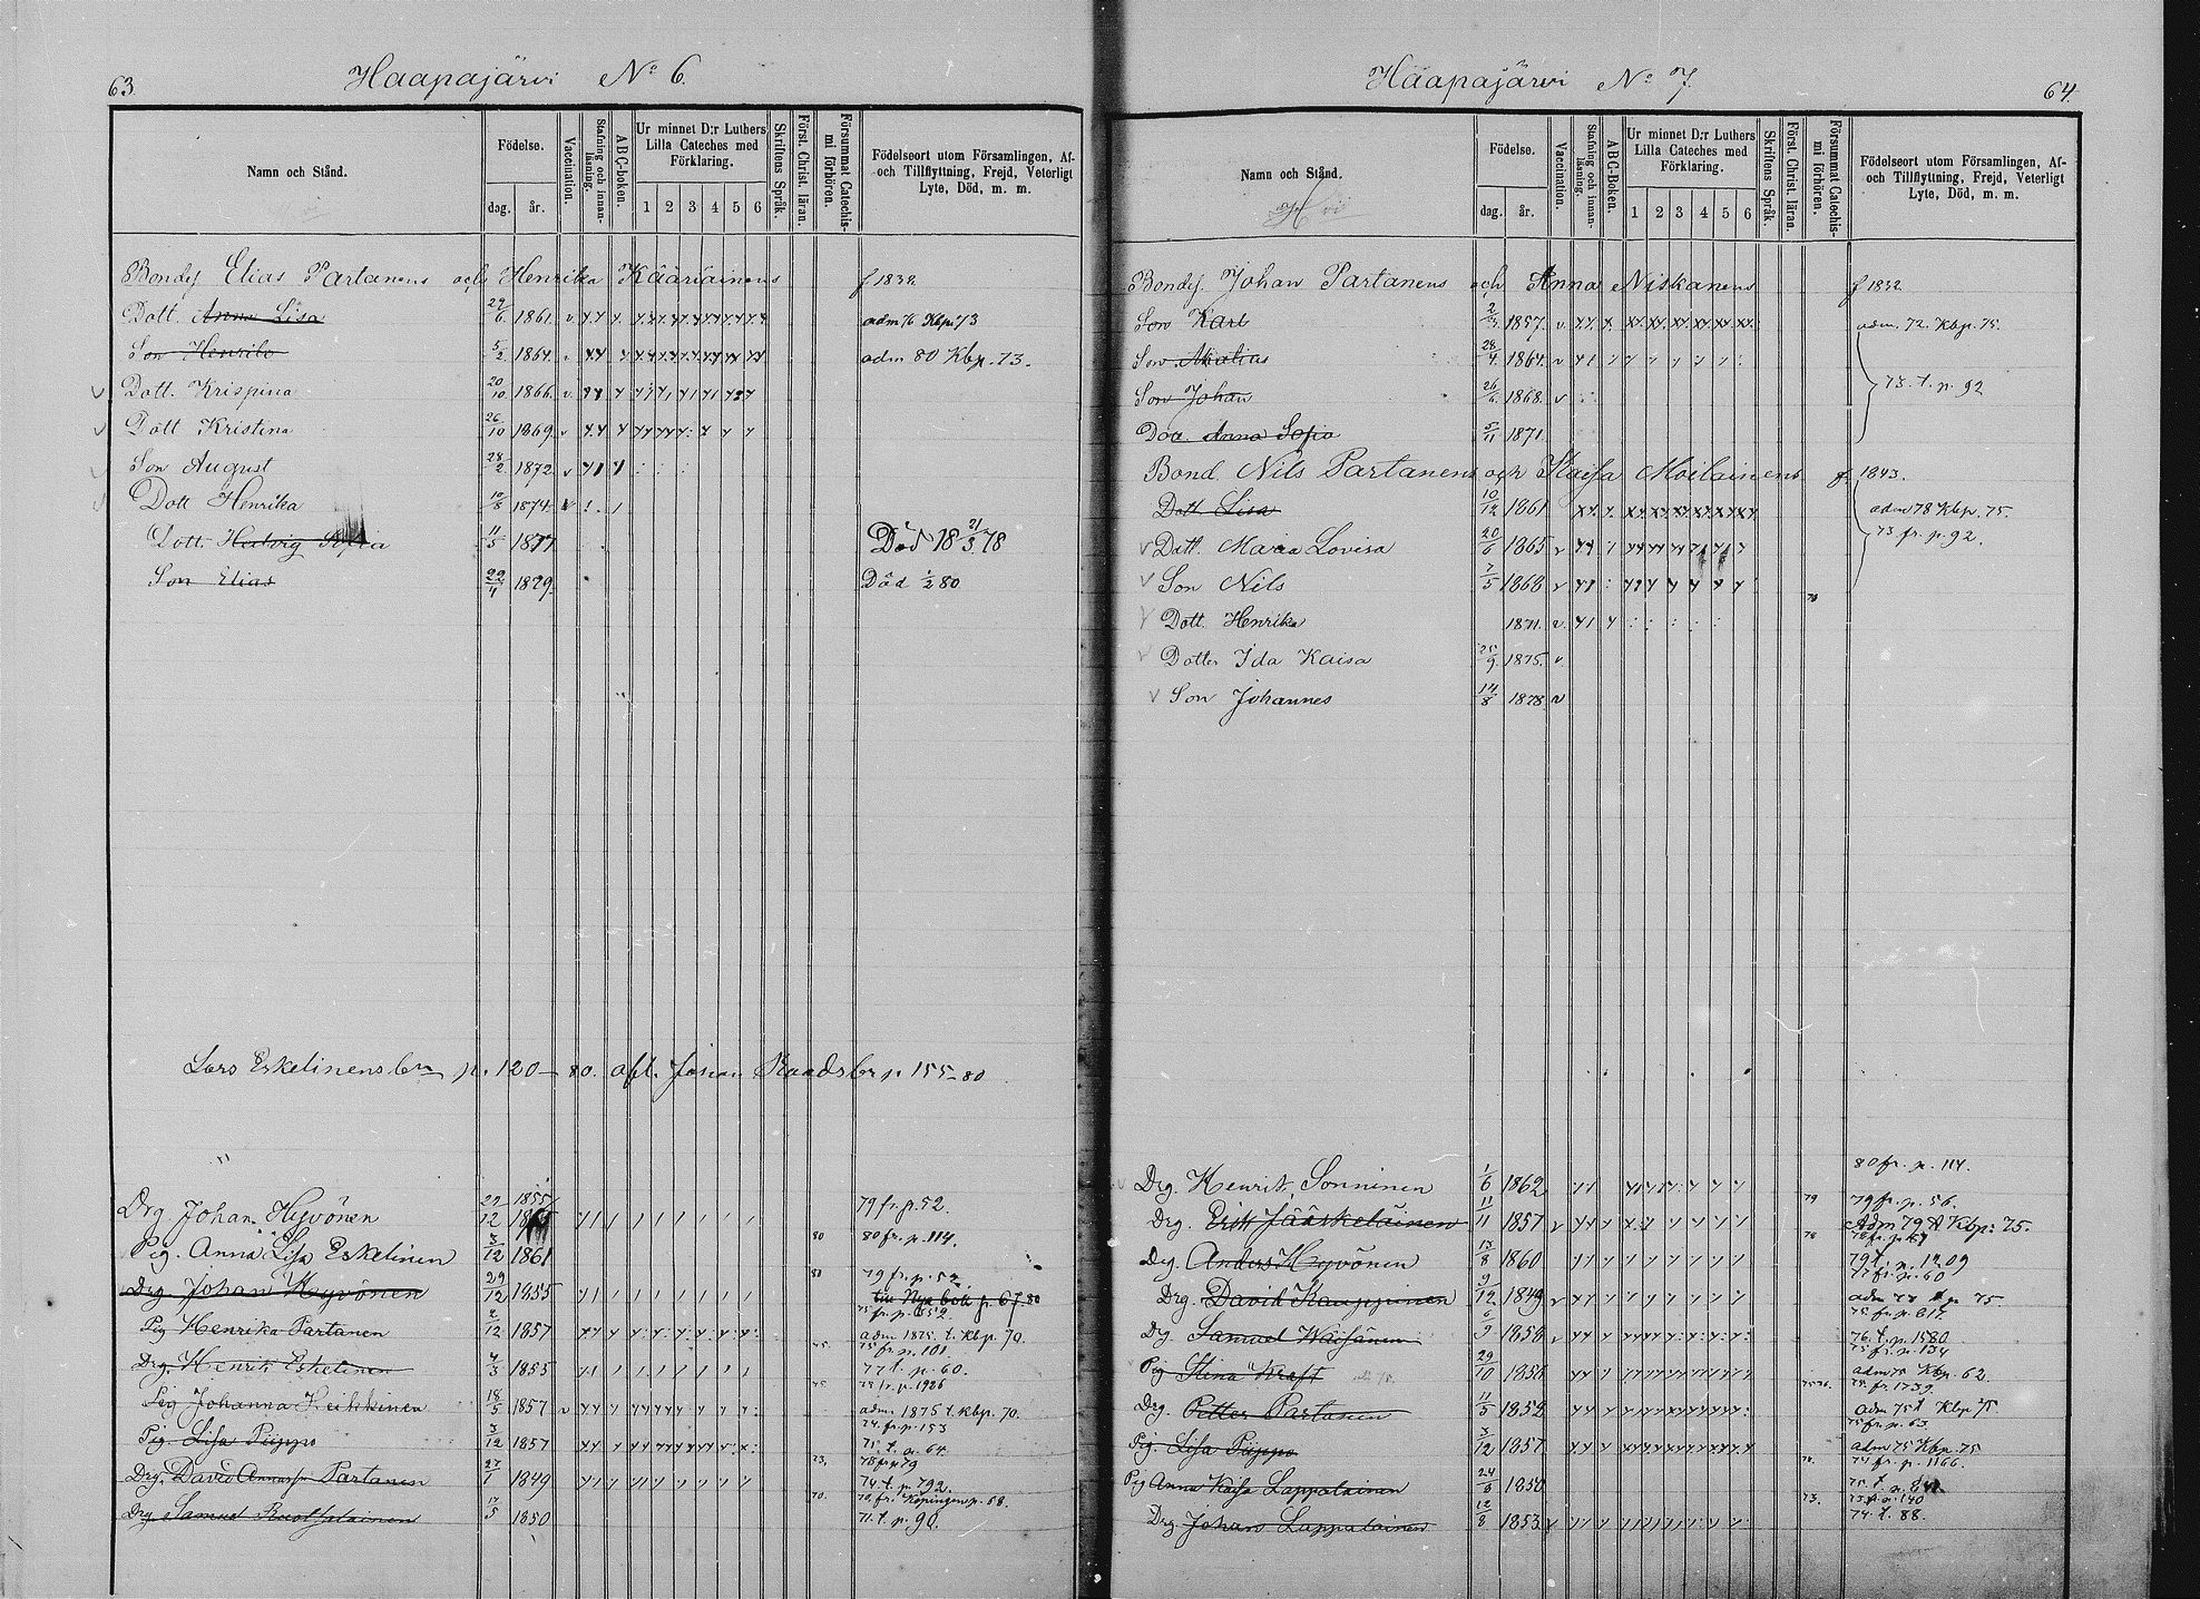 63.
Haapajärvi No 6.
Namn och Stånd.
Födelse.
dag. år.
Vaccination.
Stafning och innan-läsning.
ABC-boken.
Ur minnet D:r Luthers Lilla Cateches med Förklaring.
1 2 3 4 5 6
Skriftens Språk.
Först. Christ. läran.
Försummat Catechis-mi förhören.
Födelseort utom Församlingen, Af-och Tillflyttning, Frejd, Veterligt Lyte, Död, m. m.
Bondes Elias Partanens och Henrika Kääriäinens f 1832.
Dott. Anna Lisa 29/6 1861. v. adm 76 Kbp. 73
Son Henrik 5/2 1864. adm 80 Kbp. 73.
Dott. Krispina 20/10 1866. v.
Dott Kristina 26/10 1869. v
Son August 28/2 1872. v
Dott Henrika 10/8 1874. v
Dott. Hedvig Sofia 11/5 1877 Död 18 21/3 78
Son Elias 22/11 1879. Död 1/2 80
Lars Eskelinens brn p. 120 - 80. afl. Johan Raadsbr p. 155-80
Drg. Johan Hyvönen 29/12 1855 79 fr. p. 52.
Pig. Anna Lisa Eskelinen 3/12 1861 80 80 fr. p. 114.
Drg. Johan Hyvönen 29/12 1855 80 79 fr. p. 52.
till Nya bok p. 67. 80
Pig Henrika Partanen 2/12 1857 75 fr. p. 652.
adm 1875. t. Kbp. 70.
Drg. Henrik Eskelinen 4/3 1855 75. 75 fr. p. 101.
77 t. p. 60.
Pig Johanna Heikkinen 18/5 1857 v 75. 75 fr. p. 1926
adm. 1875 t. Kbp. 70.
Pig. Lisa Piippo 3/12 1857 74. fr. p. 153
75. t. p. 64.
Drg. David Annasson Partanen 27/1 1849 73. 73 fr. p. 79
74. t. p. 792.
Drg Samuel Ruotsalainen 17/5 1850 70. 70. fr. Köpingen p. 58.
71. t. p. 90.
64.
Haapajärvi No 7.
Namn och Stånd.
Födelse.
dag. år.
Vaccination.
Stafning och innan-läsning.
ABC-Boken.
Ur minnet D:r Luthers Lilla Cateches med Förklaring.
1 2 3 4 5 6
Skriftens Språk.
Först. Christ. läran.
Försummat Catechis-mi förhören.
Födelseort utom Församlingen, Af-och Tillflyttning, Frejd, Veterligt Lyte, Död, m. m.
Bondes. Johan Partanens och Anna Niskanens f 1832.
Son Karl 1857. v. adm. 72. Kbp. 75.
Son Matias 28/4 1864. v
Son Johan 26/6 1868. v 73. t. p. 92
Dott. Anna Sofia 5/11 1871.
Bond. Nils Partanens och Kaisa Moilainens f. 1843.
Dott. Lisa 10/12 1861 adm 78 Kbp. 75.
Dott. Maria Lovisa 20/6 1865 v 73 fr. p. 92.
Son Nils 7/5 1868 v
Dott. Henrika 1871. v.
Dotter Ida Kaisa 25/9 1875. v
Son Johannes 14/8 1878 v
80 fr. p. 114.
Drg. Henrik Sonninen 1/6 1862
Drg. Erik Jääskeläinen 11/11 1857 v 79 79 fr. p. 56.
Adm 79 t Kbp. 75.
Drg. Anders Hyvönen 13/8 1860 78
79 t. p. 1209
Drg. David Kauppinen 9/12 1849 v 77 fr. p. 60
Drg. Samuel Wäisänen 6/9 1858 v 75 fr. p. 617.
76. t. p. 1580
Pig Stina Kraft 29/10 1858 75 fr. p. 134
adm 75 Kbp. 62.
Drg. Petter Partanen 11/5 1852 75. fr. 1739.
adm 75 t Kbp 75
Pig. Lisa Piippo 3/12 1857 75 fr. p. 63
adm 75 Kbp. 75
Pig Anna Kaisa Lappalainen 24/8 1850 74. 74 fr. p. 1166.
Drg. Johan Lappalainen 12/8 1853 73. 73 fr. p. 140
74. t. 88.